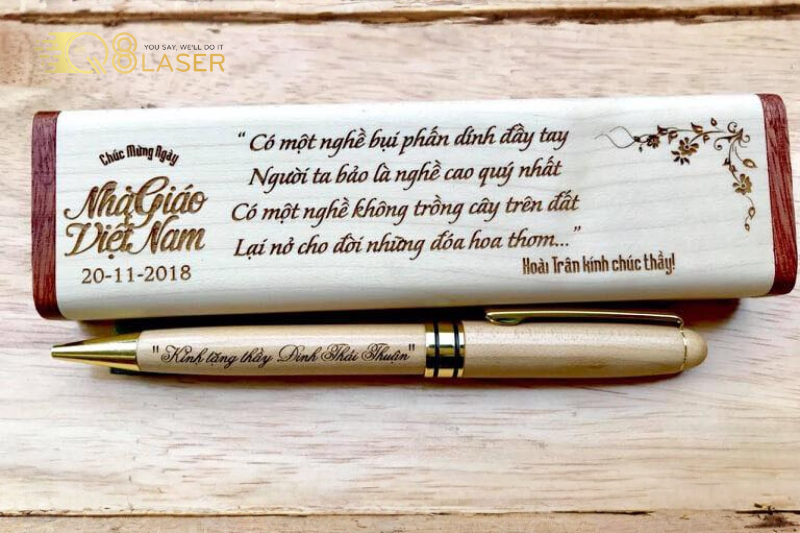 YOU SAY, WE'LL DO IT
Q8LASER
Chúc Mừng Ngày
Nhà Giáo
Việt Nam
20-11-2018
“ Có một nghề bụi phấn dính đầy tay
Người ta bảo là nghề cao quý nhất
Có một nghề không trồng cây trên đất
Lại nở cho đời những đóa hoa thơm...”
Hoài Trân kính chúc thầy!
" Kính tặng thầy Đinh Thái Thuận"